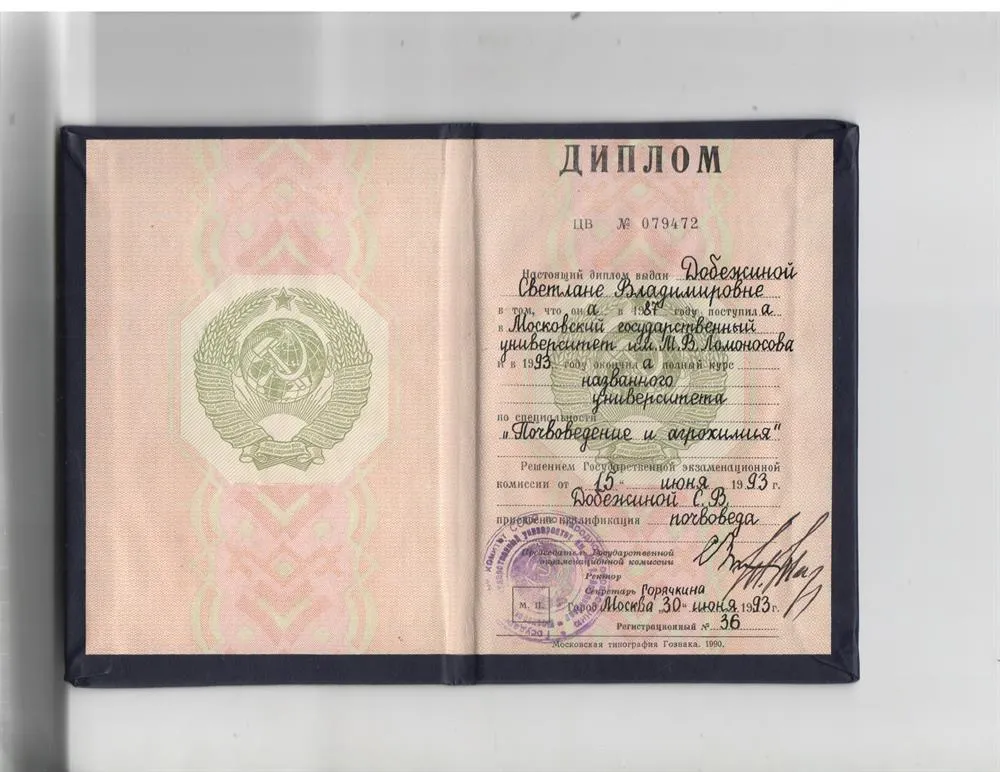 ДИПЛОМ
ЦВ № 079472
Настоящий диплом выдан Добежиной
Светлане Владимировне
в том, что она в 1987 году поступила
в Московский государственный
университет им. М.В. Ломоносова
и в 1993 году окончила полный курс
названного
университета
по специальности
„Почвоведение и агрохимия"
Решением Государственной экзаменационной
комиссии от „15" июня 1993 г.
Добежиной С.В.
присвоена квалификация почвоведа
Председатель Государственной
экзаменационной комиссии
Ректор
Секретарь Горячкина
М. П.
Город Москва „30" июня 1993 г.
Регистрационный № 36
Московская типография Гознака. 1990.